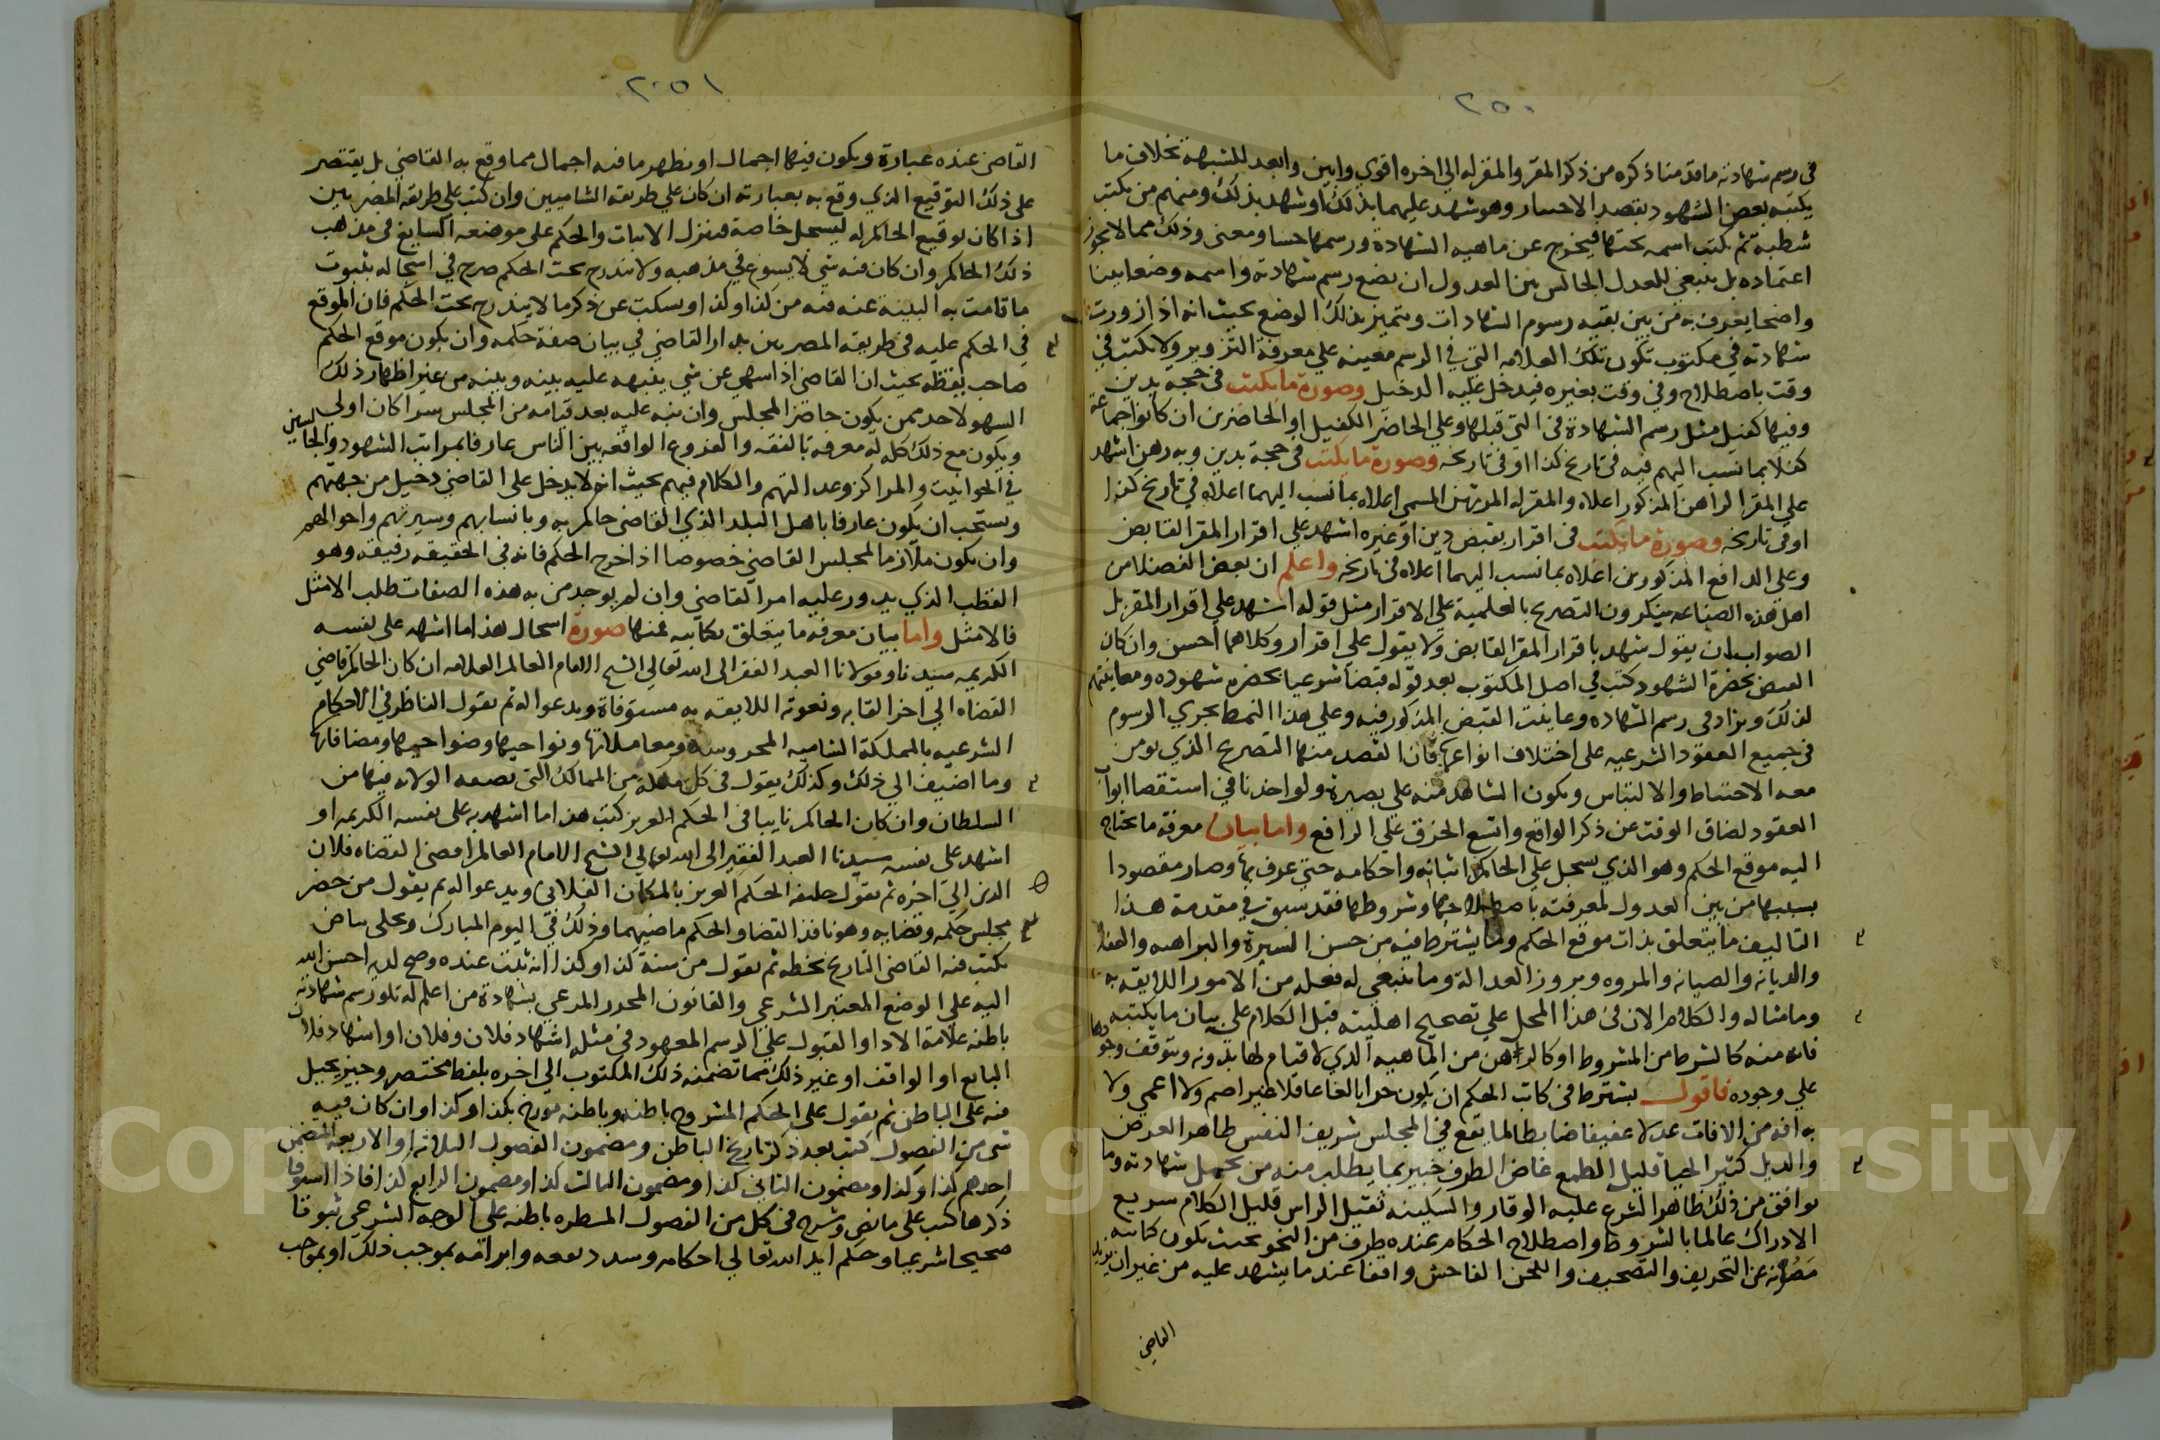 ٢٥٠
في رسم شهادته ما قدمنا ذكره من ذكر المقر والمقر له الى اخره اقوي وابين وابعد للشبهة بخلاف ما
يكتبه بعض الشهود بقصد الاختصار وهو شهد عليهما بذلك او شهد بذلك ومنهم من يكتب
شطبة ثم يكتب اسمه تحتها فيخرج عن ماهية الشهادة ورسمها حسا ومعنى وذلك مما لا يجوز
اعتماده بل ينبغي للعدل الجالس بين العدول ان يضع رسم شهادته واسمه وضعا بينا
واضحا يعرف به من بين بقيه رسوم الشهادات ويتميز بذلك الوضع بحيث انه اذا زورت
شهادته في مكتوب تكون تلك العلامه التي في الرسم معينه علي معرفة التزوير ولا يكتب في
وقت باصطلاح وفي وقت بغيره فيدخل عليه الدخيل وصورة ما يكتب في حجه بدين
وفيها كفيل مثل رسم الشهادة في التي قبلها وعلي الحاضر الكفيل او الحاضرين ان كانوا جماعة
كفلا بما نسب اليهم فيه في تاريخ كذا او في تاريخه وصورة ما يكتب في حجة بدين وبه رهن اشهد
علي المقر الراهن المذكور اعلاه والمقر له المرتهن المسمى اعلاه بما نسب اليهما اعلاه في تاريخ كذا
او في تاريخه وصورة ما يكتب في اقرار بقبض دين او غيره اشهد علي اقرار المقر القابض
وعلي الدافع المذكورين اعلاه بما نسب اليهما اعلاه في تاريخه واعلم ان بعض الفضلا من
اهل هذه الصناعه ينكرون التصريح بالعلمية علي الاقرار مثل قوله اشهد علي اقرار المقر بل
الصواب ان يقول شهد باقرار المقر القابض ولا يقول على اقرار وكلاهما احسن وان كان
القبض بحضرة الشهود كتب في اصل المكتوب بعد قوله قبضا شرعيا بحضرة شهوده ومعاينتهم
لذلك ويزاد في رسم الشهاده وعاينت القبض المذكور فيه وعلي هذا النمط يجري الرسوم
في جميع العقود الشرعيه على اختلاف انواعها فان القصد منها التصريح الذي يومن
معه الاحتياط والالتباس ويكون الشاهد منه علي بصيرة ولو اخذنا في استقصا ابواب
العقود لضاق الوقت عن ذكر الواقع واتسع الخرق علي الراقع واما بيان معرفة ما يحتاج
اليه موقع الحكم وهو الذي يسجل علي الحاكم اثباته واحكامه حتي عرف بها وصار مقصودا
بسببها من بين العدول لمعرفته باصطلاحها وشروطها فقد سبق في مقدمة هذا
التاليف ما يتعلق بذات موقع الحكم وما يشترط فيه من حسن السيرة والبراهه والعفة
والديانه والصيانه والمروه وبروز العدالة وما ينبغي له فعله من الامور اللايقه به
وما شاله والكلام الان في هذا المحل علي تصحيح اهليته قبل الكلام علي بيان ما يكتبه
فانه منه كالشرط من المشروط او كالركن من الماهيه الذي لا قيام لها بدونه ويتوقف وجودها
علي وجوده فاقول يشترط في كاتب الحكم ان يكون حرا بالغا عاقلا غير اصم ولا اعمي ولا
به افه من الافات عدلا عفيفا ضابطا لما يقع في المجلس شريف النفس طاهر العرض
والذيل كثير الحيا قليل الطمع غاض الطرف خبير بما يطلب منه من تحمل شهادته وما
يوافق من ذلك ظاهر الشرع عليه الوقار والسكينه ثقيل الراس قليل الكلام سريع
الادراك عالما بالشروط واصطلاح الحكام عنده طرف من النحو بحيث يكون كتابته
مصونه عن التحريف والتصحيف واللحن الفاحش واقفا عند ما يشهد عليه من غير ان يزيد
القاضي
٢٠٥١
القاضي عنده عبارة ويكون فيها اجمال او يظهر ما فيه اجمال مما وقع به القاضي بل يقتصر
على ذلك التوقيع الذي وقع به بعبارته ان كان علي طريقه الشاميين وان كتب علي طريقه المصريين
اذا كان توقيع الحاكم له ليسجل خاصة فينزل الاثبات والحكم على موضعه السايغ في مذهب
ذلك الحاكم وان كان فيه شي لا يسوغ في مذهبه ولا يندرج تحت الحكم صرح في اسجاله بثبوت
ما قامت به البينه عنه فيه من كذا وكذا ويسكت عن ذكر ما لا يندرج تحت الحكم فان الموقع
في الحكم عليه في طريقه المصريين مدار القاضي في بيان صفة حكمه وان يكون موقع الحكم
صاحب يقظه بحيث ان القاضي اذا سهي عن شي ينبهه عليه بينه وبينه من غير اظهار ذلك
السهو لاحد ممن يكون حاضر المجلس وان نبه عليه بعد قيامه من المجلس سرا كان اولى
ويكون مع ذلك كله له معرفه بالفقه والفروع الواقعه بين الناس عارفا بمراتب الشهود والجالسين
في الحوانيت والمراكز وعدالتهم والكلام فيهم بحيث انه لا يدخل على القاضي دخيل من جهتهم
ويستحب ان يكون عارفا باهل البلد الذي القاضي حاكم به وبانسابهم وسيرتهم واحوالهم
وان يكون ملازما لمجلس القاضي خصوصا اذا خرج الحكم فانه في الحقيقه رفيقه وهو
القطب الذي يدور عليه امر القاضي وان لم يوجد من به هذه الصفات طلب الامثل
فالامثل واما بيان معرفه ما يتعلق بكتابته فمنها صورة اسجال هذا ما اشهد على نفسه
الكريمه سيدنا ومولانا العبد الفقير الى الله تعالي الشيخ الامام العالم العلامه ان كان الحاكم قاضي
القضاه الي اخر القابه ونعوته اللايقه به مستوفاة ويدعو له ثم يقول الناظر في الاحكام
الشرعيه بالمملكة الشاميه المحروسه ومعاملاتها ونواحيها وضواحيها ومضافاتها
وما اضيف الي ذلك وكذلك يقول في كل مملكة من الممالك التي تصفه الولاه فيها من
السلطان وان كان الحاكم نايبا في الحكم العزيز كتب هذا ما اشهد به على نفسه الكريمه او
اشهد على نفسه سيدنا العبد الفقير الى الله تعالي الشيخ الامام العالم اقضى القضاه فلان
الدين الي اخره ثم يقول خليفه الحكم العزيز بالمكان الفلاني ويدعو له ثم يقول من حضر
مجلس حكمه وقضايه وهو نافذ القضا والحكم ماضيهما وذلك في اليوم المبارك ويخلى بياض
يكتب فيه القاضي التاريخ بخطه ثم يقول من سنة كذا وكذا انه ثبت عنده وصح لديه احسن الله
اليه علي الوضع المعتبر الشرعي والقانون المحرر المرعي بشهادة من اعلم له تلو رسم شهادته
باطنه علامة الادا والقبول علي الرسم المعهود في مثله اشهاد فلان وفلان او اشهاد فلان
البايع او الواقف او غير ذلك مما تضمنه ذلك المكتوب الي اخره بلفظ مختصر وجيز يحيل
فيه على الباطن ثم يقول على الحكم المشروح باطنه وباطنه مورخ بكذا وكذا وان كان فيه
شي من الفصول كتب بعد ذكر تاريخ الباطن ومضمون الفصول الثلاثه او الاربعه المتضمن
احدهم كذا وكذا ومضمون الثاني كذا ومضمون الثالث كذا ومضمون الرابع كذا فاذا استوفا
ذكرها كتب على ما نص وشرح في كل من الفصول المسطره باطنه علي الوجه الشرعي ثبوتا
صحيحا شرعيا وحكم ايد الله تعالي احكامه وسدد نقضه وابرامه بموجب ذلك او بموجب